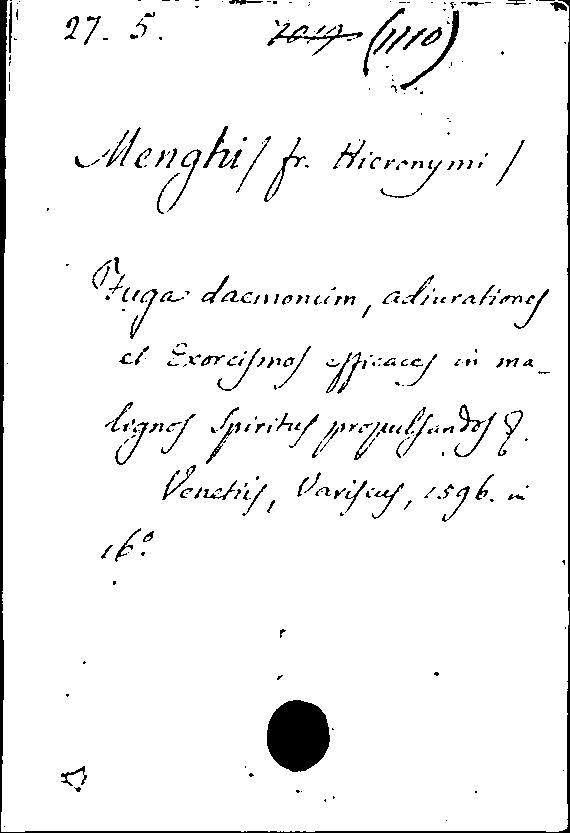 27. 5. 2019 (1110)
Menghi / fr. Hieronymi /
Fuga daemonum, adiurationes
et Exorcismos efficaces in ma-
lignos Spiritus propulsandos &.
Venetiis, Variscus, 1596. in
16º